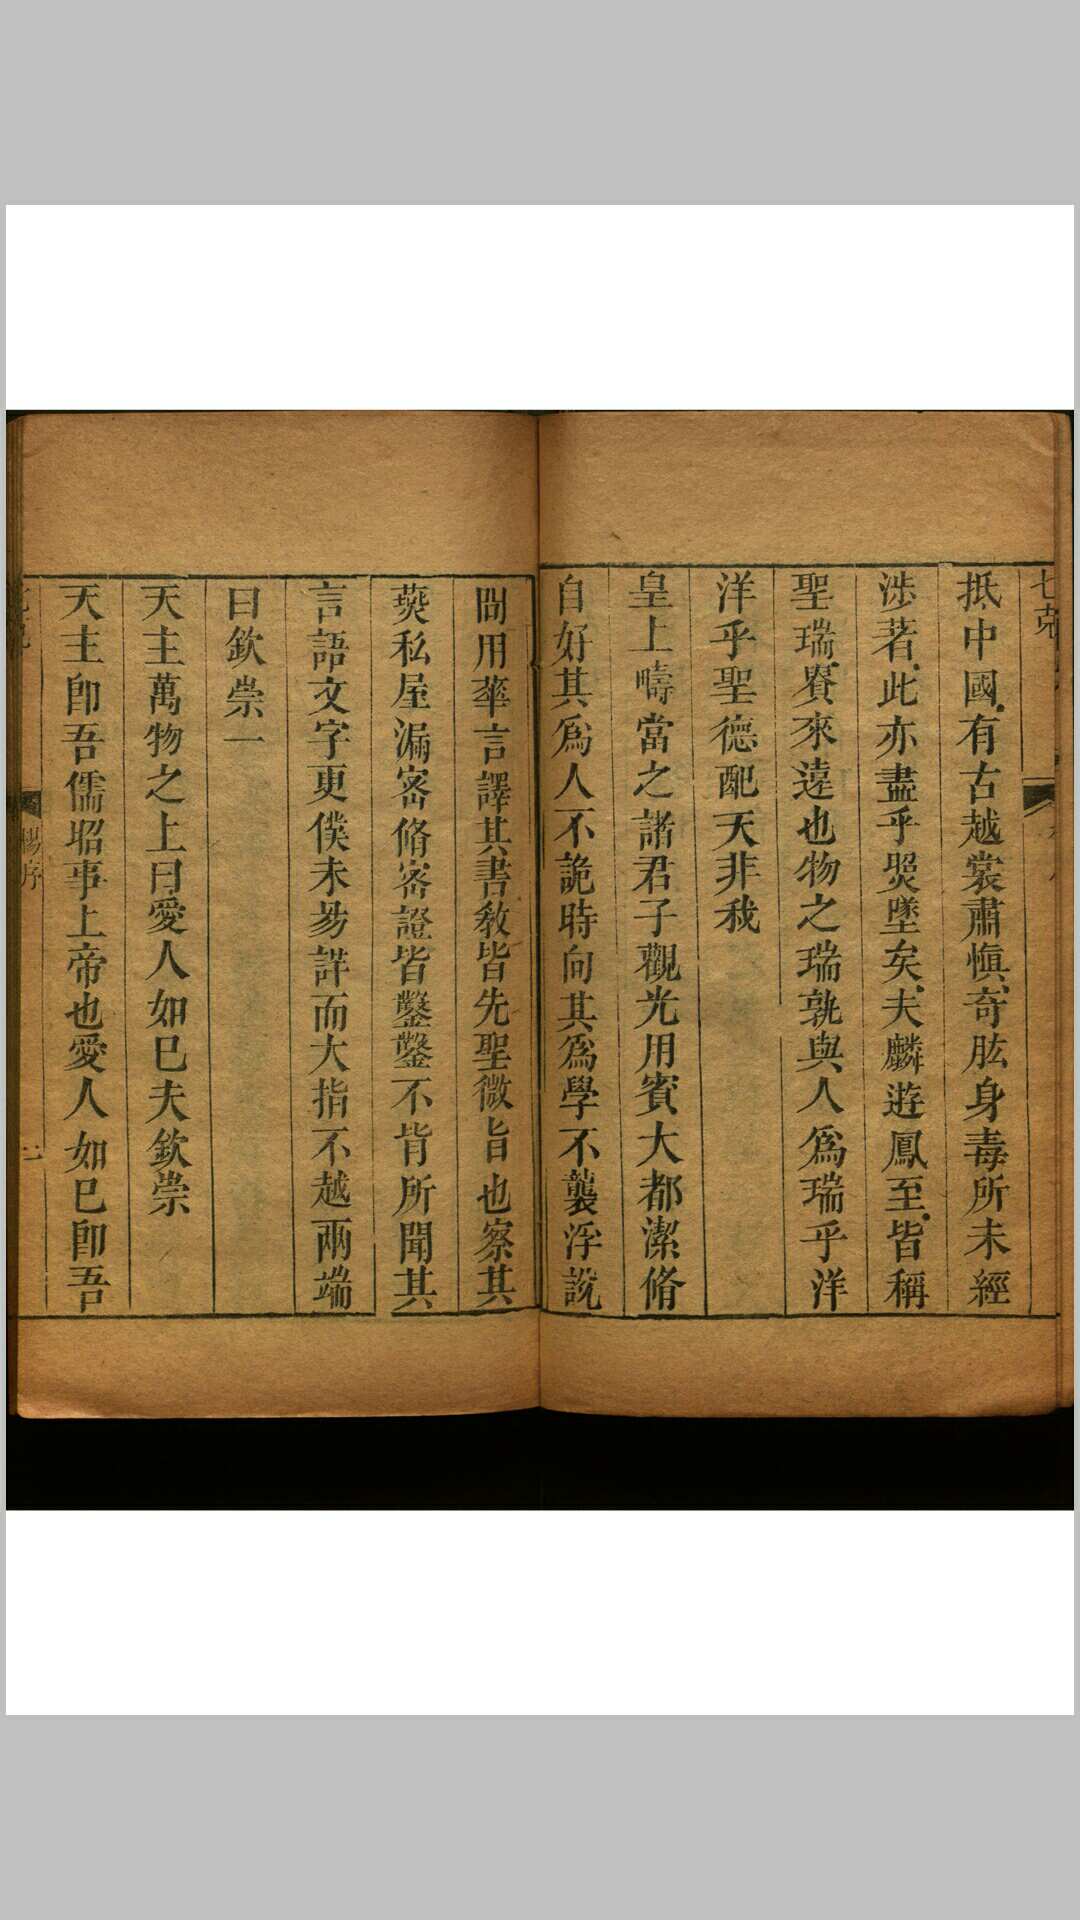 七克
抵中國有古越裳肅愼奇肱身毒所未經
涉者此亦盡乎照墜矣夫麟遊鳳至皆稱
聖瑞賚來遠也物之瑞孰與人爲瑞乎洋
洋乎聖德配天非我
皇上疇當之諸君子觀光用賓大都潔脩
自好其爲人不詭時向其爲學不襲浮說
間用華言譯其書敎皆先聖微旨也察其
燕私屋漏密脩密證皆鑿鑿不背所聞其
言語文字更僕未易詳而大指不越兩端
曰欽崇一
天主萬物之上曰愛人如己夫欽崇
天主卽吾儒昭事上帝也愛人如己卽吾
楊序